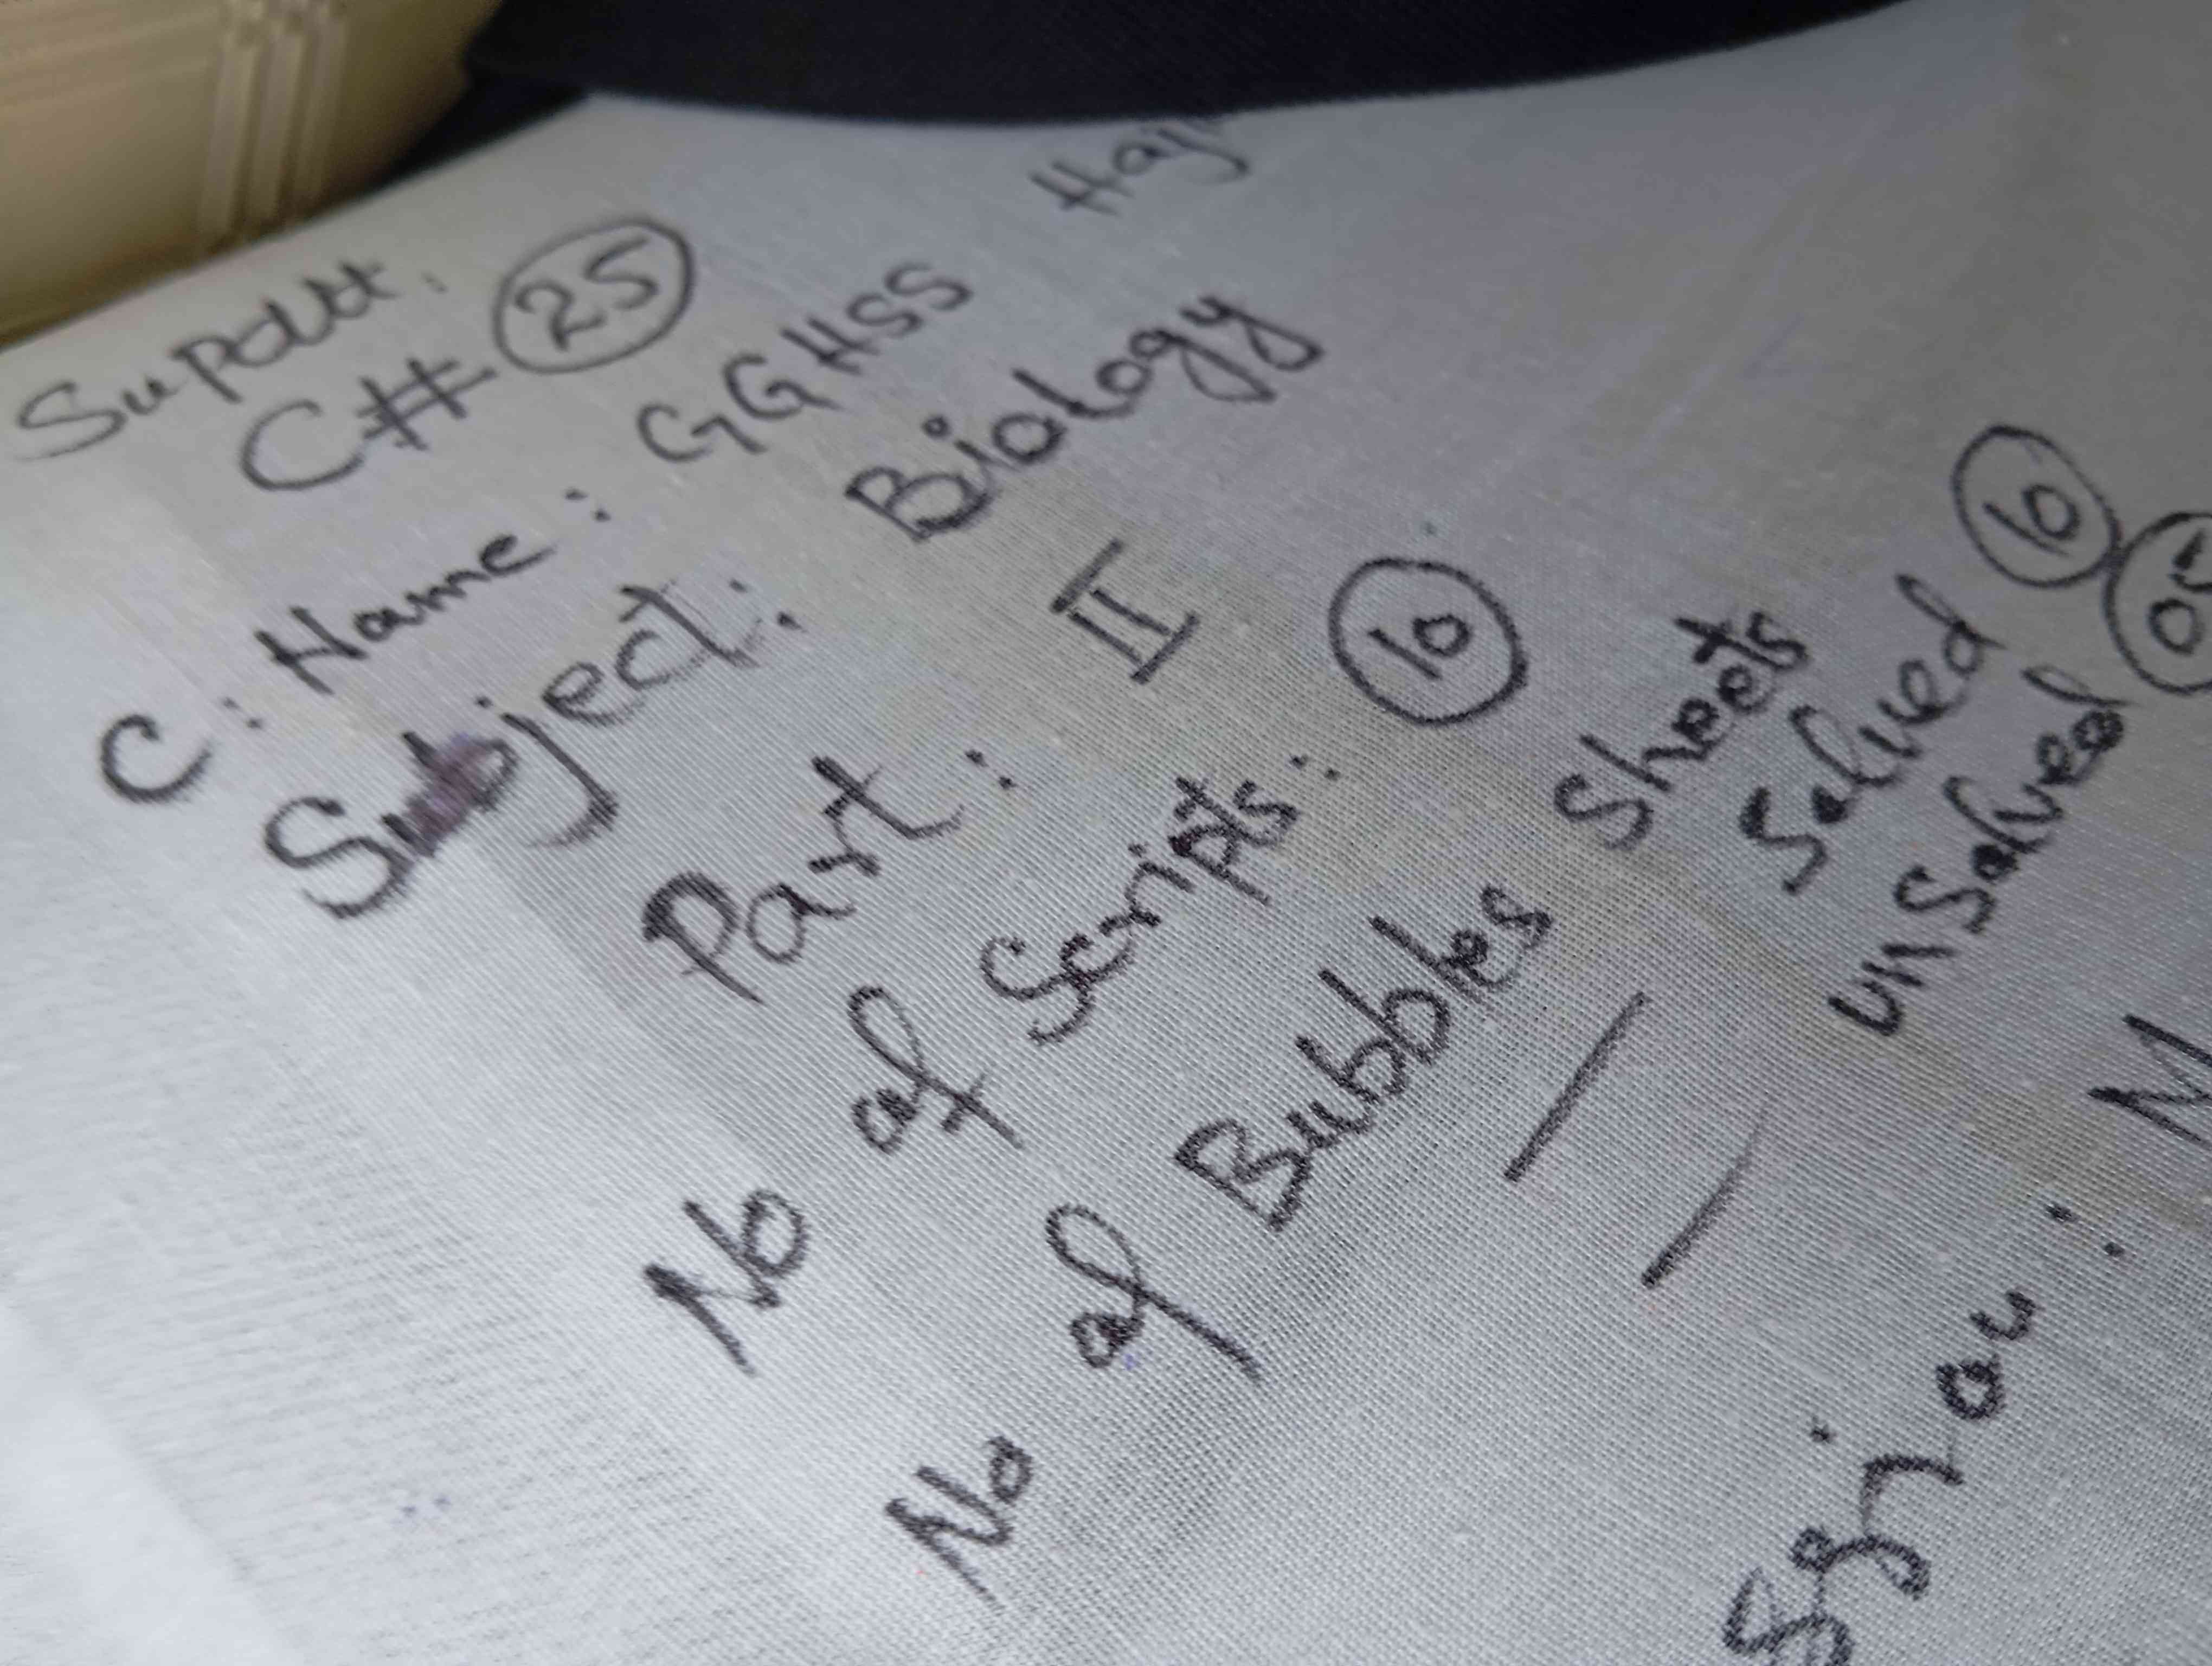 Supdtt.
C# 25
C: Name: GGHSS
Subject: Biology
Part: II
No of Scripts: 10
No of Bubbles Sheets
Solved 10
UnSolved